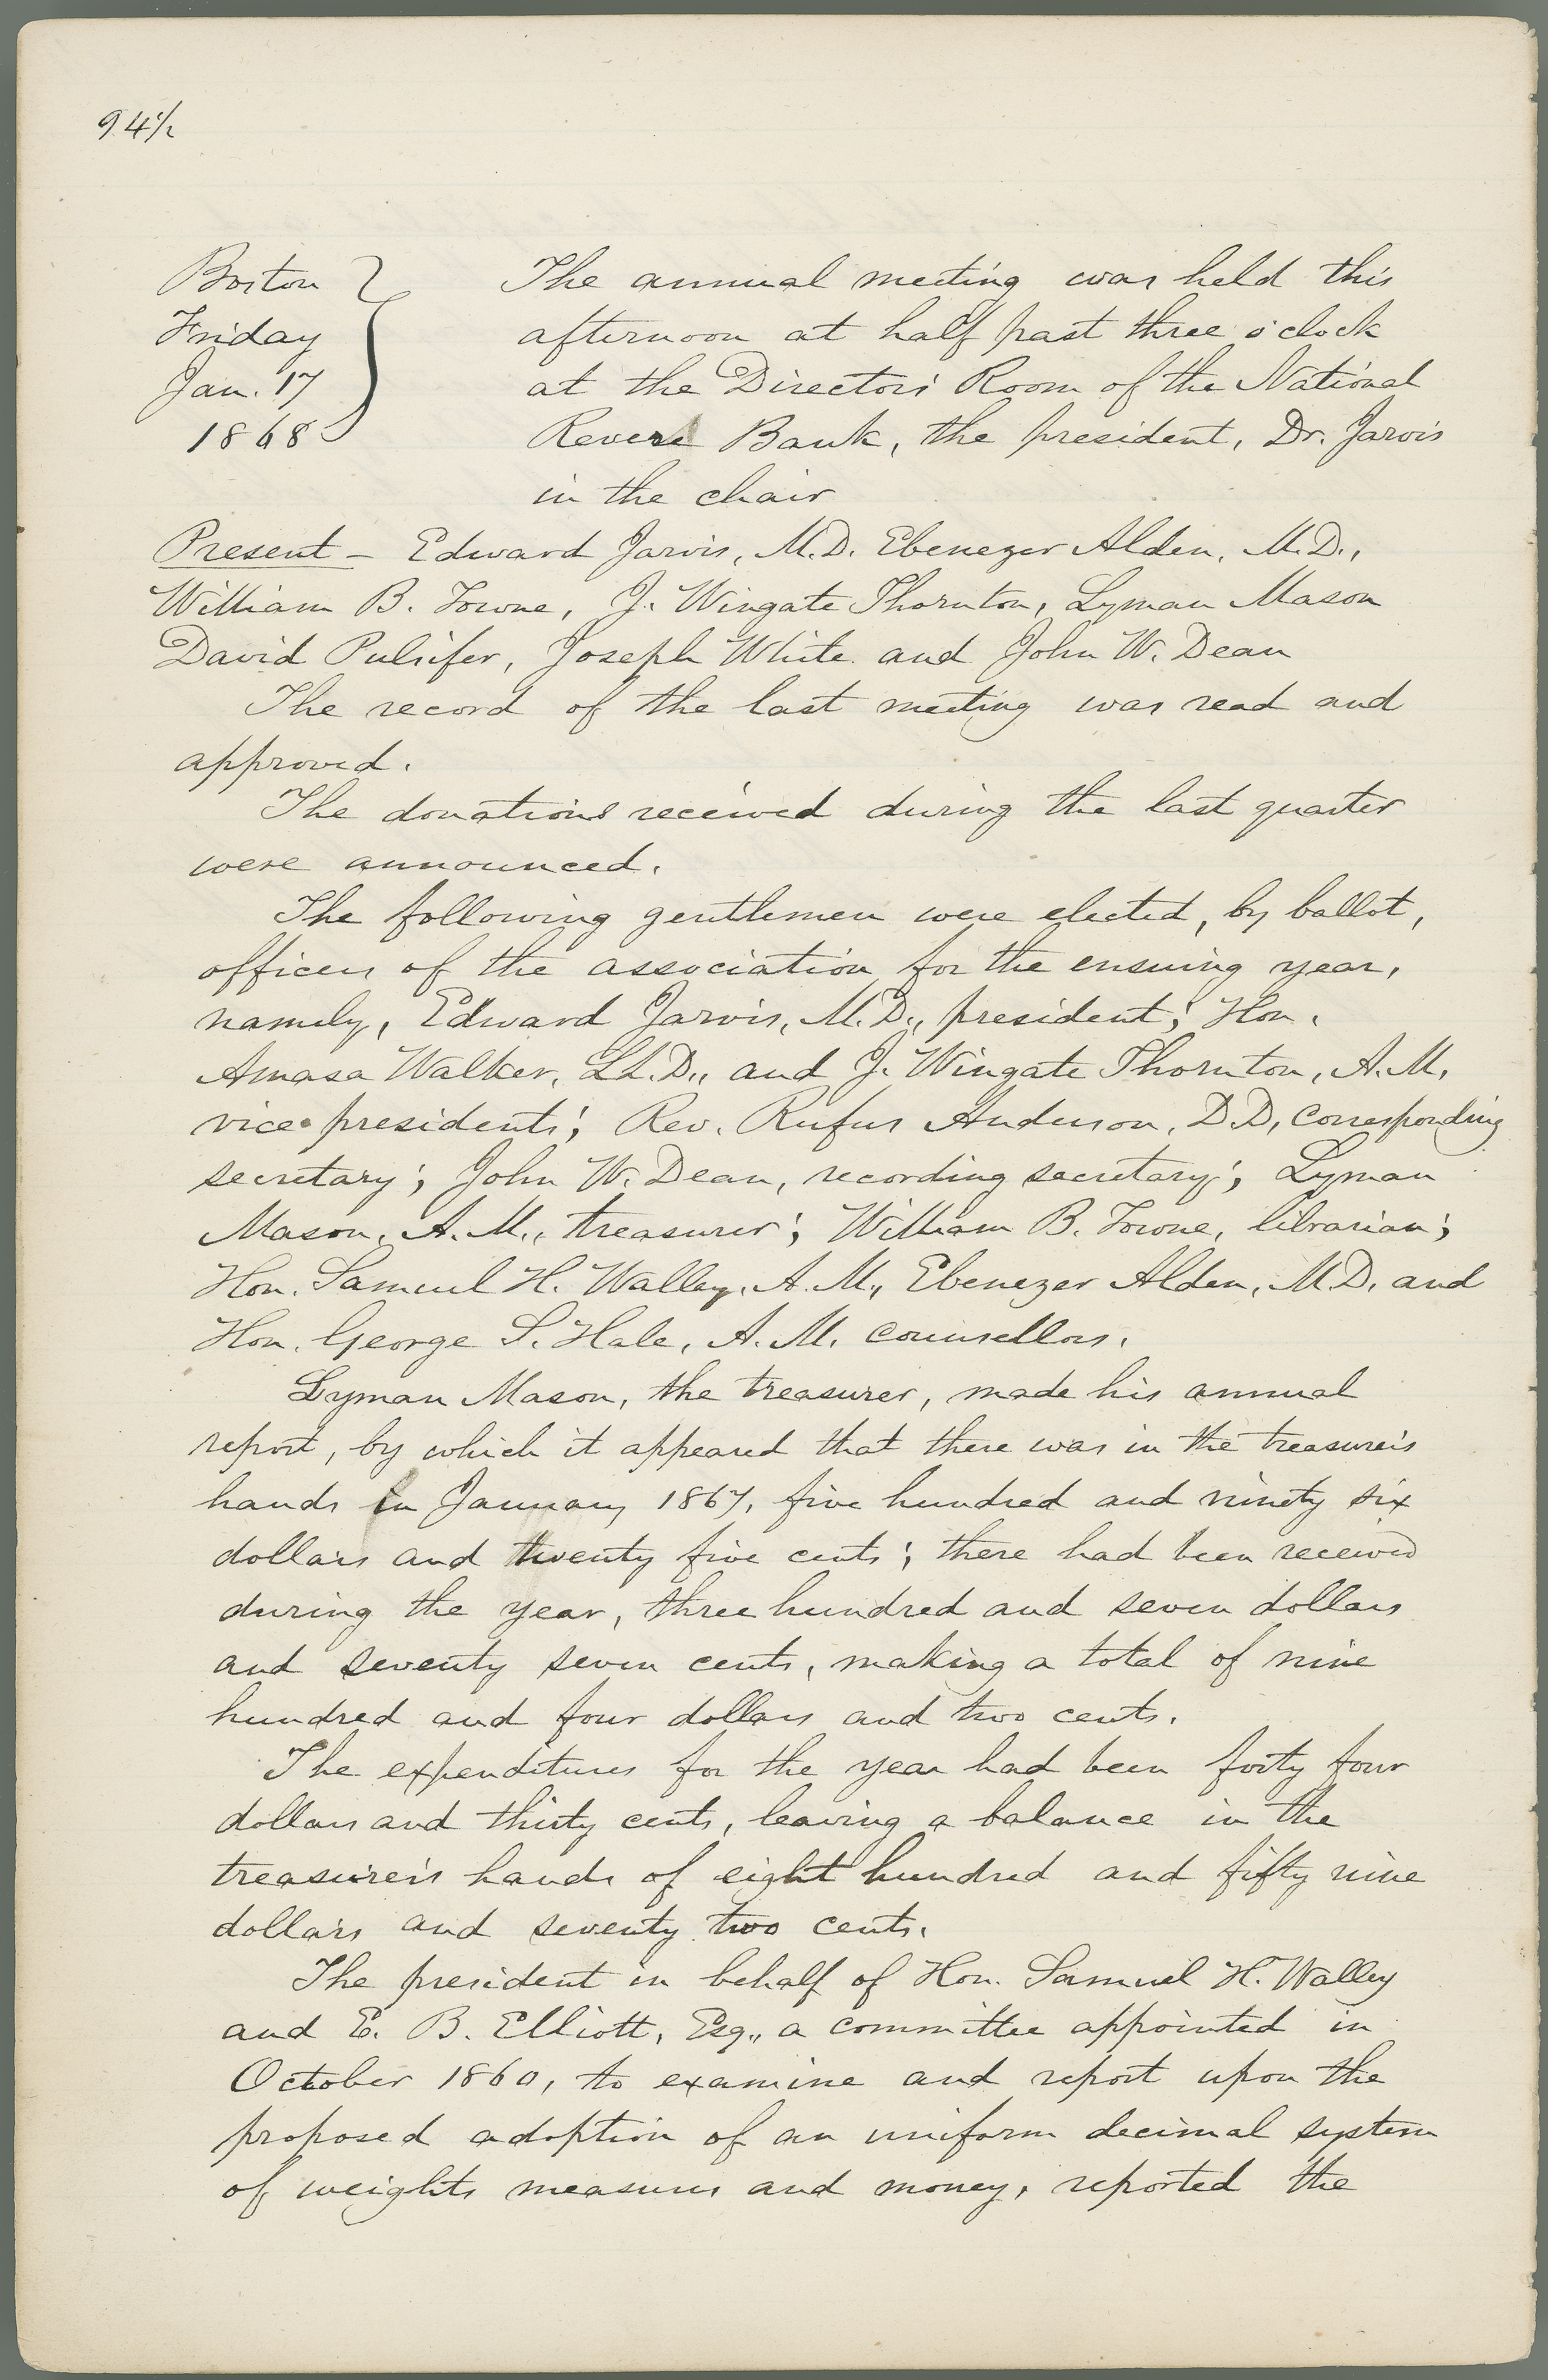 94½
Boston
Friday
Jan. 17
1868
The annual meeting was held this
afternoon at half past three o'clock
at the Directors' Room of the National
Revere Bank, the president, Dr. Jarvis
in the chair
Present – Edward Jarvis, M.D. Ebenezer Alden, M.D.,
William B. Towne, J. Wingate Thornton, Lyman Mason
David Pulsifer, Joseph White and John W. Dean
The record of the last meeting was read and
approved.
The donations received during the last quarter
were announced.
The following gentlemen were elected, by ballot,
officers of the association for the ensuing year,
namely, Edward Jarvis, M.D., president; Hon.
Amasa Walker, LL.D., and J. Wingate Thornton, A.M.
vice presidents; Rev. Rufus Anderson, D.D, corresponding
secretary; John W. Dean, recording secretary; Lyman
Mason, A.M., treasurer; William B. Towne, librarian;
Hon. Samuel H. Walley, A.M., Ebenezer Alden, M.D. and
Hon. George S. Hale, A.M. counsellors.
Lyman Mason, the treasurer, made his annual
report, by which it appeared that there was in the treasurer's
hands in January 1867, five hundred and ninety six
dollars and twenty five cents; there had been received
during the year, three hundred and seven dollars
and seventy seven cents, making a total of nine
hundred and four dollars and two cents.
The expenditures for the year had been forty four
dollars and thirty cents, leaving a balance in the
treasurer's hands of eight hundred and fifty nine
dollars and seventy two cents.
The president in behalf of Hon. Samuel H. Walley
and E. B. Elliott, Esq., a committee appointed in
October 1860, to examine and report upon the
proposed adoption of an uniform decimal system
of weights measures and money, reported the